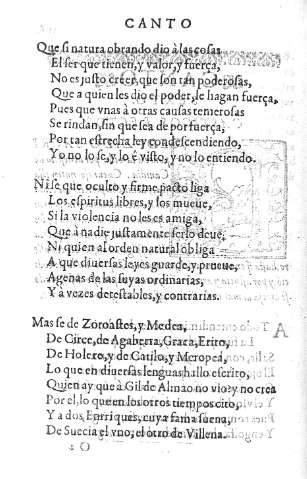 CANTO
Que si natura obrando dio à las cosas
El ser que tienen, y valor, y fuerça,
No es justo creer, que son tan poderosas,
Que a quien les dio el poder, le hagan fuerça,
Pues que vnas à otras causas temerosas
Se rindan, sin que sea de por fuerça,
Por tan estrecha ley condescendiendo,
Yo no lo se, y lo è visto, y no lo entiendo.
Ni se que oculto y firme pacto liga
Los espiritus libres, y los mueue,
Si la violencia no les es amiga,
Que à nadie justamente se lo deue,
Ni quien al orden natural obliga
A que diuersas leyes guarde, y prueue,
Agenas de las suyas ordinarias,
Y à vezes detestables, y contrarias.
Mas se de Zoroastes, y Medea,
De Circe, de Agaberta, Graca, Erito,
De Holero, y de Catilo, y Meropea,
Lo que en diuersas lenguas hallo escrito,
Quien ay que à Gil de Almao no vio? y no crea
Por el, lo que en los otros tiempos cito,
Y a dos Enrriques, cuya fama suena,
De Suecia el vno, el otro de Villena.